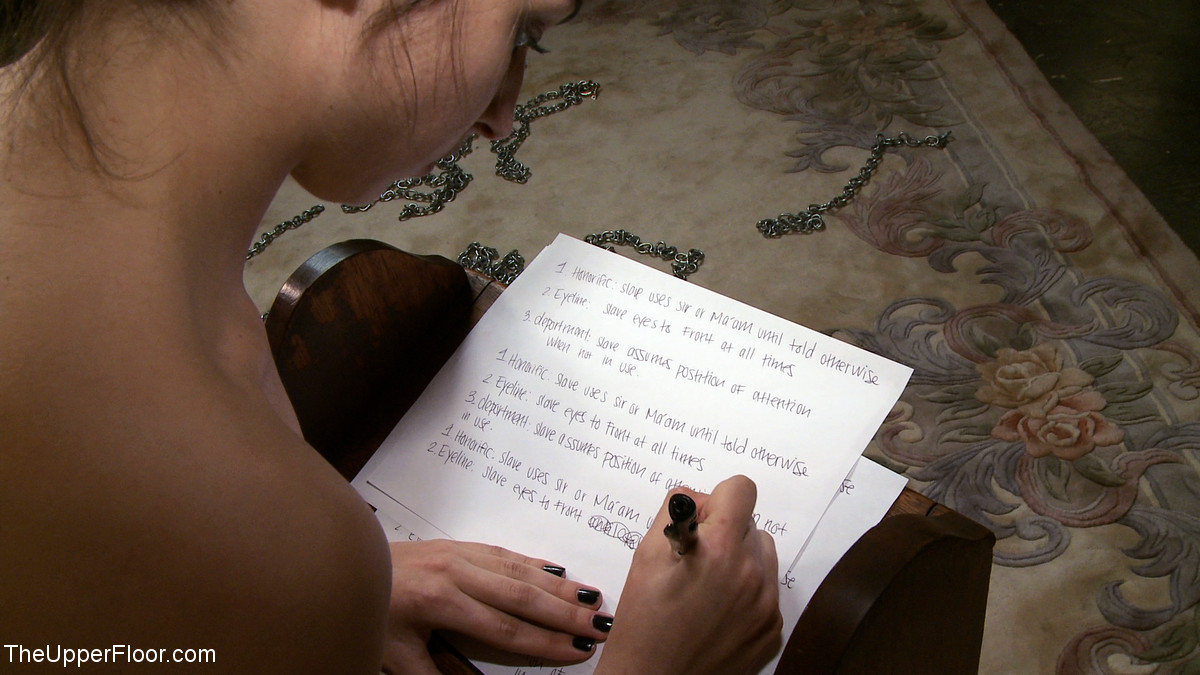 1 Honorific: slave uses sir or Ma'am until told otherwise
2. Eyeline: slave eyes to Front at all times
3. department: slave assumes postition of attention
when not in use.
1 Honorific: slave uses sir or Ma'am until told otherwise
2 Eyeline: slave eyes to Front at all times
3. department: slave assumes position of not
in use.
1 Honorific: slave uses sir or Ma'am
2 Eyeline: slave eyes to Front
se
se
TheUpperFloor.com